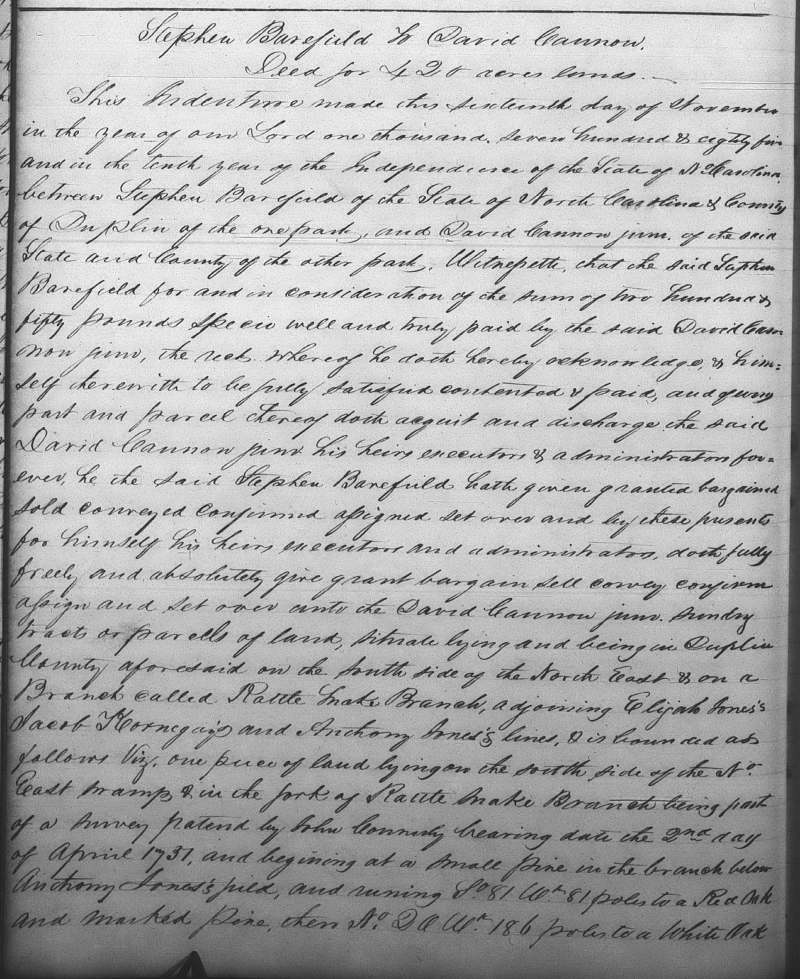 Stephen Barefield to David Cannon.
Deed for 420 acres lands.
This Indenture made this sixteenth day of November
in the year of our Lord one thousand, seven hundred & eighty five
and in the tenth year of the Independence of the State of No Carolina,
between Stephen Barefield of the State of North Carolina & County
of Duplin of the one part, and David Cannon junr. of the said
State and County of the other part, Witnesseth, that the said Stephen
Barefield for and in consideration of the sum of two hundred &
fifty pounds specie well and truly paid by the said David Can-
non junr, the rect. whereof he doth hereby acknowledge, & him=
self therewith to be fully satisfied contented & paid, and of every
part and parcel thereof doth acquit and discharge the said
David Cannon junr. his heirs executors & administrators for=
ever, he the said Stephen Barefield hath given granted bargained
sold conveyed confirmed assigned set over and by these presents
for himself his heirs executors and administrators, doth fully
freely and absolutely give grant bargain sell convey confirm
assign and set over unto the David Cannon junr. sundry
tracts or parcells of land, situate lying and being in Duplin
County aforesaid on the south side of the North East & on a
Branch called Rattle Snake Branch, adjoining Elijah Jones's
Jacob Kornegay's and Anthony Jones's lines, & is bounded as
follows Viz. one piece of land lying on the south side of the No.
East swamp & in the fork of Rattle Snake Branch being part
of a survey patend by John Connerly bearing date the 2nd day
of April 1731, and begining at a small pine in the branch below
Anthony Jones's field, and runing So 81 Wt 81 poles to a Red Oak
and marked pine, then No. 20 Wt. 186 poles to a White Oak